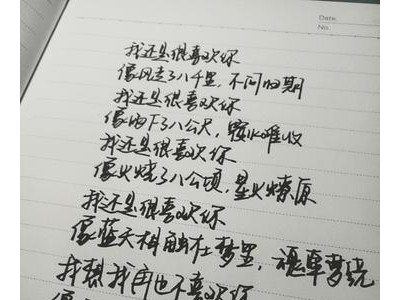 Date.
No.
我还是很喜欢你
像风走了八千里，不问归期
我还是很喜欢你
像雨下了八公尺，覆水难收
我还是很喜欢你
像火烧了八公顷，星火燎原
我还是很喜欢你
像蓝天和幽社梦里，魂牵梦绕
我想我再也不喜欢你
像